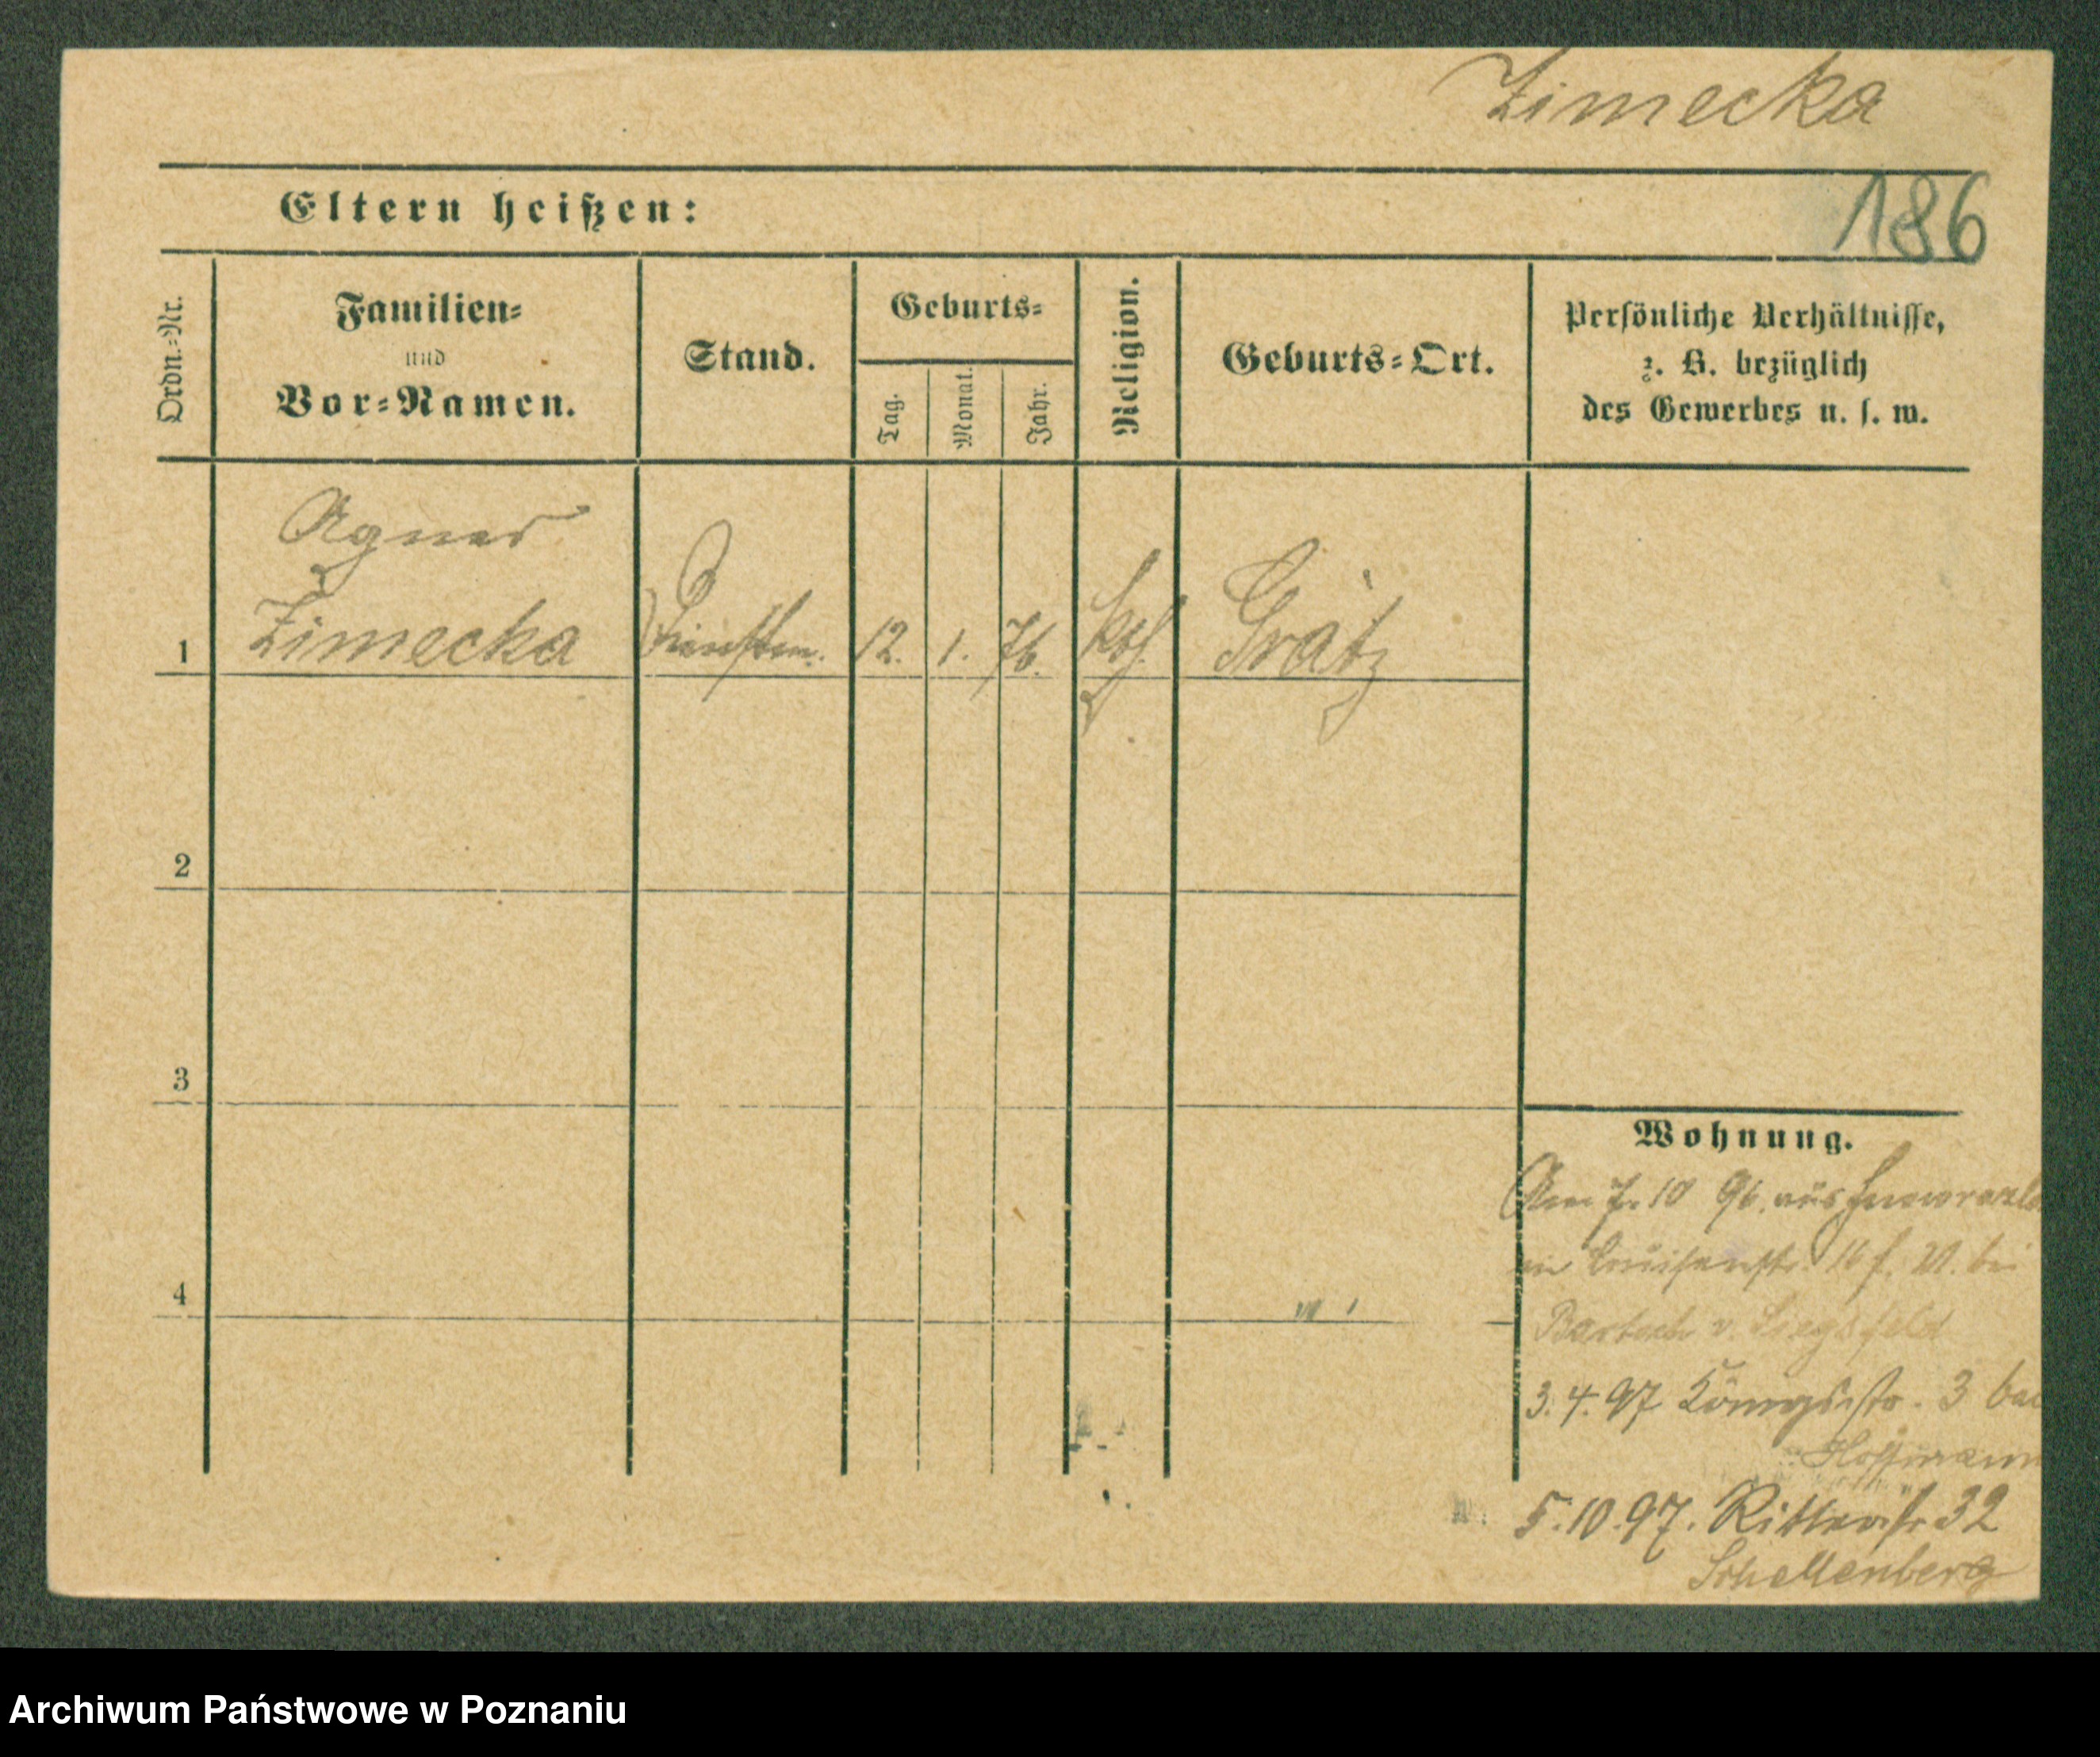 Zimecka
186
Eltern heißen:
Ordn.-Nr.
Familien-
und
Vor-Namen.
Stand.
Geburts-
Tag.
Monat.
Jahr.
Religion.
Geburts-Ort.
Persönliche Verhältnisse,
z. B. bezüglich
des Gewerbes u. s. w.
Agnes
1 Zimecka 12. 1. 76. kth. Grätz
2
3
4
Wohnung.
10 96. aus
Luisenstr. 16 bei
v. Siegsfeld
3. 4. 97 Königsstr. 3 bei
Hoffmann
5. 10. 97. Ritterstr 32
Schellenberg
Archiwum Państwowe w Poznaniu